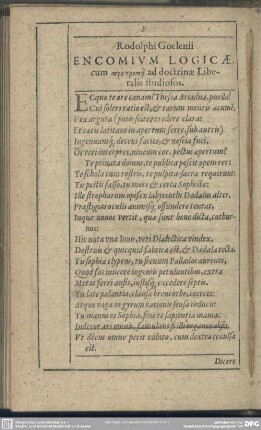 Rodolphi Goclenii
ENCOMIVM LOGICÆ,
cum προτροπῇ ad doctrinæ Libe-
ralis studiosos.
ECquo te are canam? Thesia Ariadna, puella?
Cui solers ratio est, & rarum mentis acumẽ,
Vox arguta (potis scita res edere clara:
Et cæcu latitant in apertum ferre, sub auris)
Ingenuamq́, decens facies, & nescia fuci,
Oris veri interpres, sincerum cor, pectus apertum?
Te privata domus, te publica poscit opem res:
Te schola cum rostris, te pulpita sacra requirunt:
Tu pestis falso, tu mors & certa Sophista:
Ille stropharum opifex labyrinthi Dædalm alter,
Præstigias oculu animisq́, offundere tentat,
Inque nouos vertit, quæ sunt bene dicta, cothur-
nos:
His nata vna Ioui, veri Dialectica vindex,
Destruis & quicquid fabrica est, & Dædala tecta.
Tu sophia clypeus, tu frenum Pallados aureum,
Quod fas mittere ingenii petulantibus, extra
Metas ferri ausis, iustosq́, excedere septis.
Tu late palantia, claudis breui orbe, coerces:
Atque vaga in gyrum rationis sensa reducis
Tu manus es Sophia, sine te sapientia manca.
Iudecor ars omnis, famulans
Vt decus omne perit cubito, cum dextra reuulsa
est.
Dicere